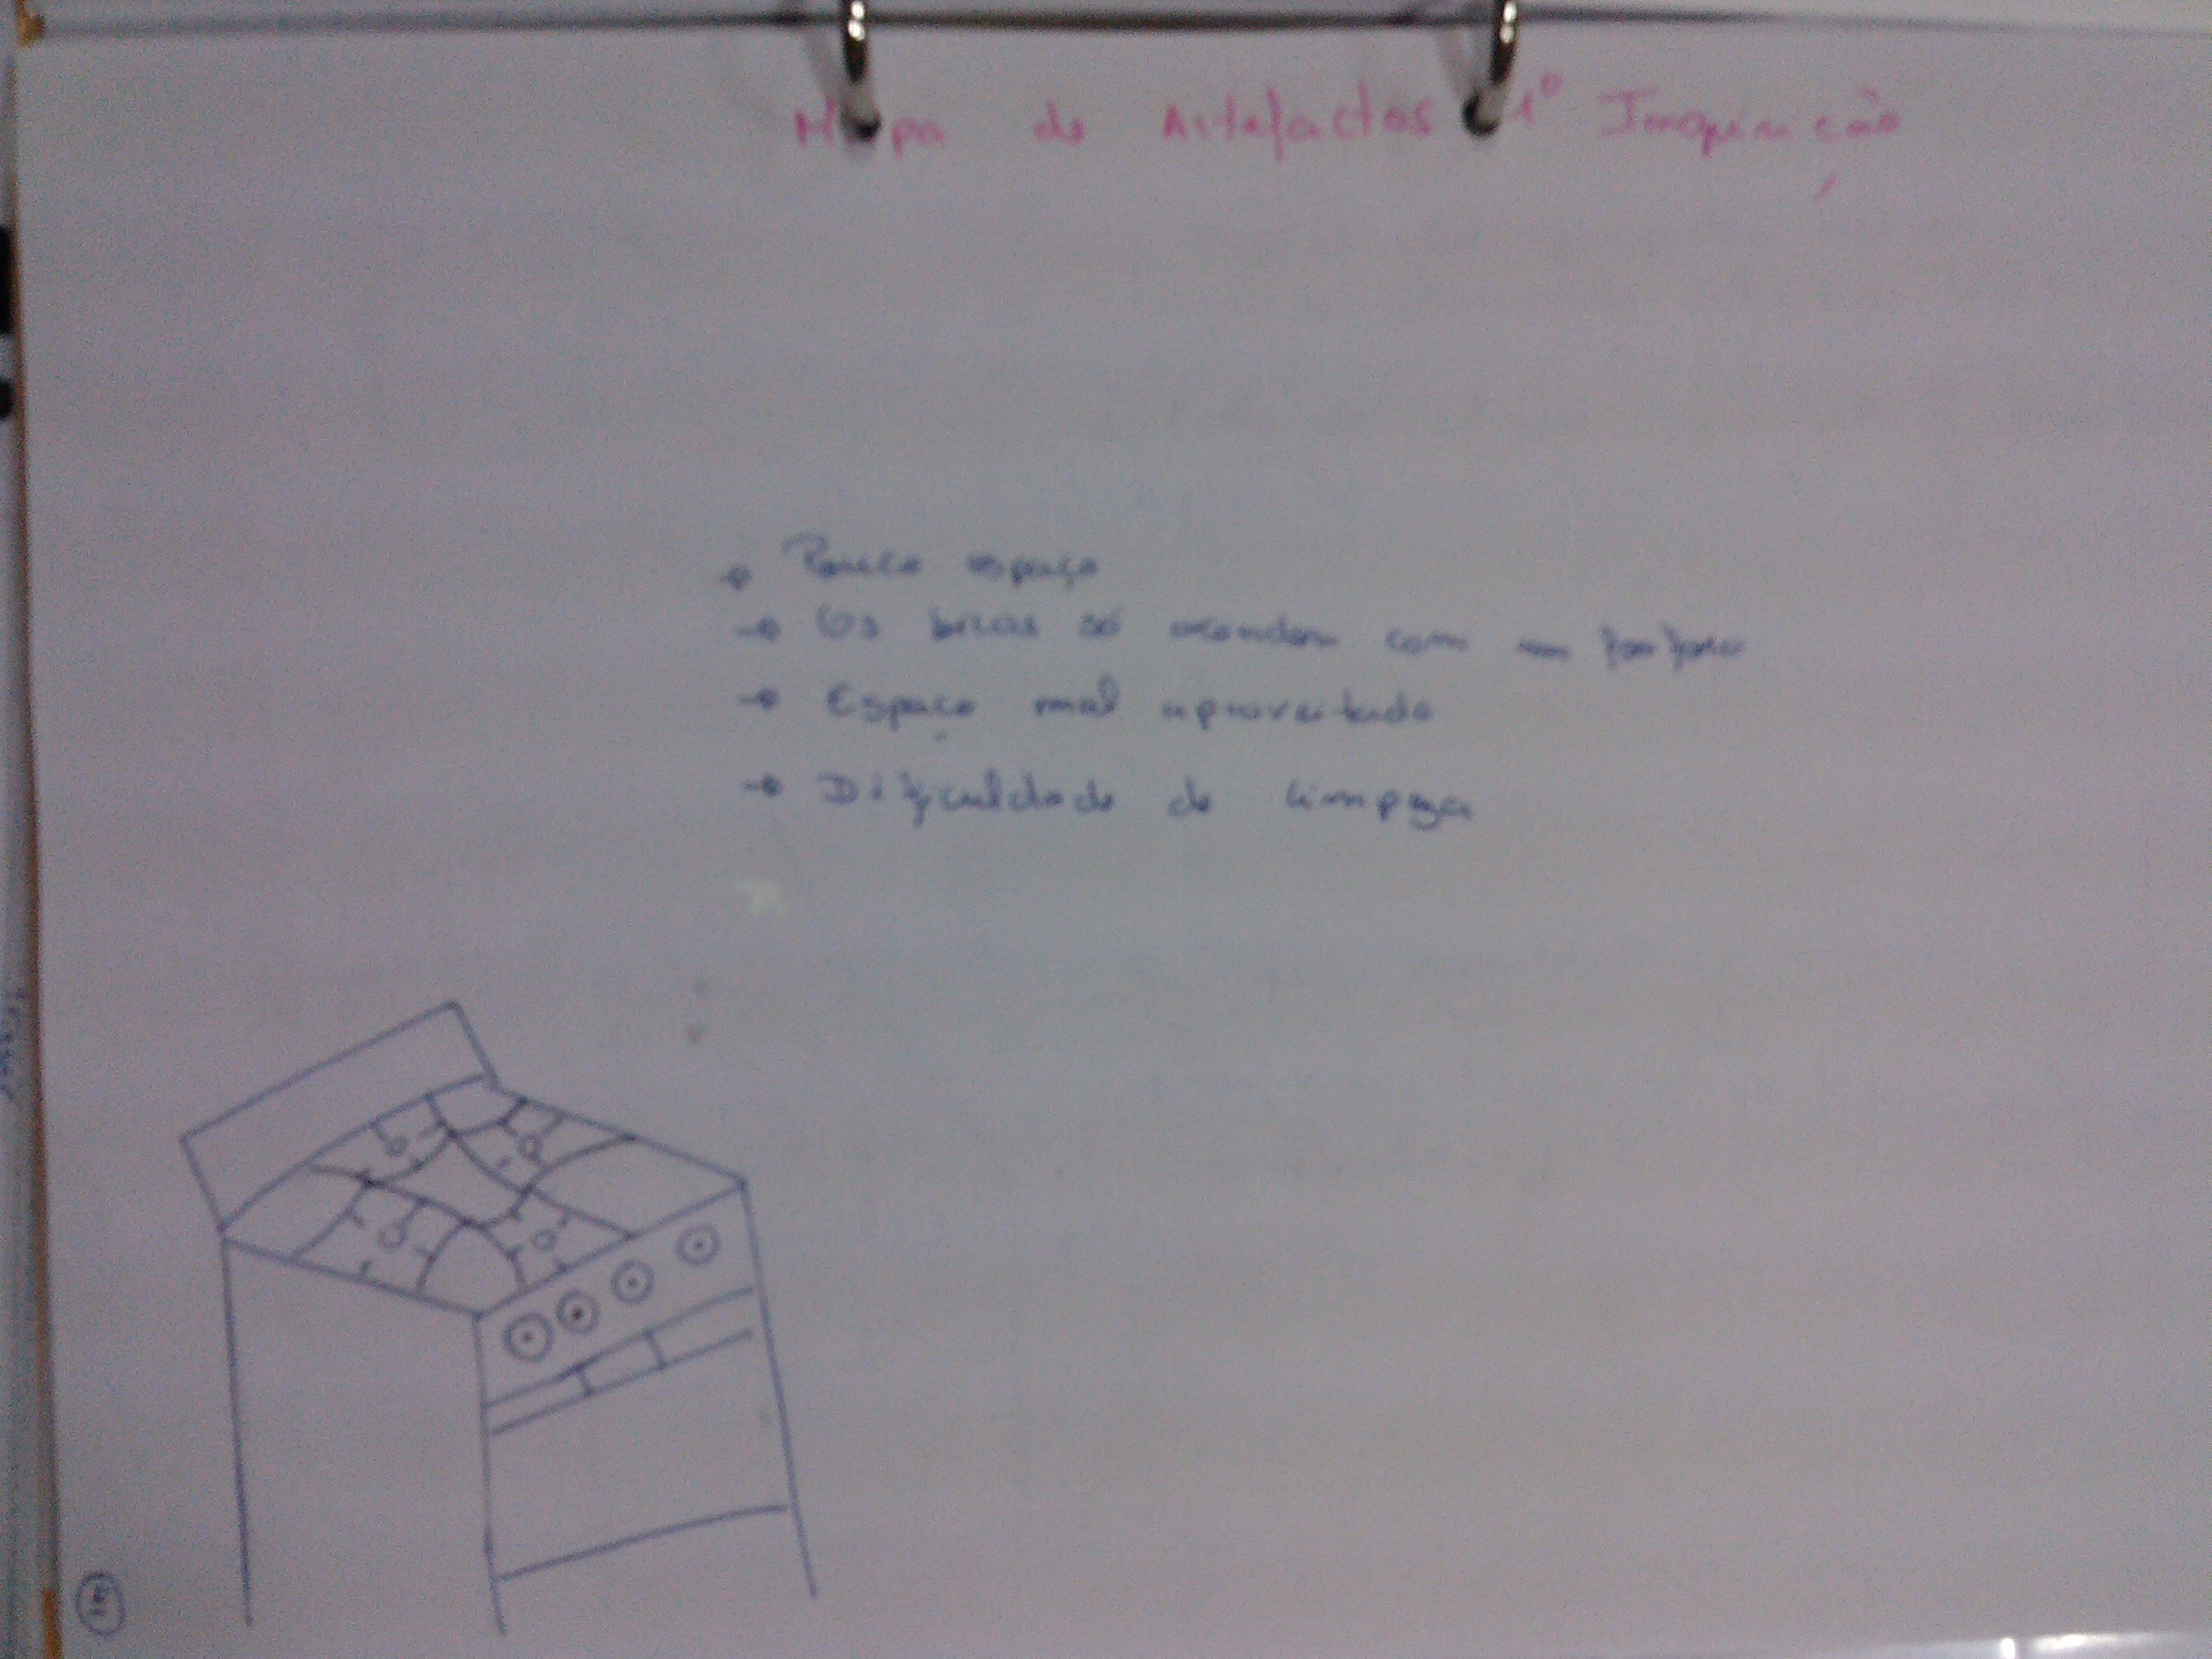 Mapa de Artefactos 1º Inquirição
→ Pouco espaço
→ Os bicos só acendem com um fósforo
→ Espaço mal aproveitado
→ Dificuldade de limpeza